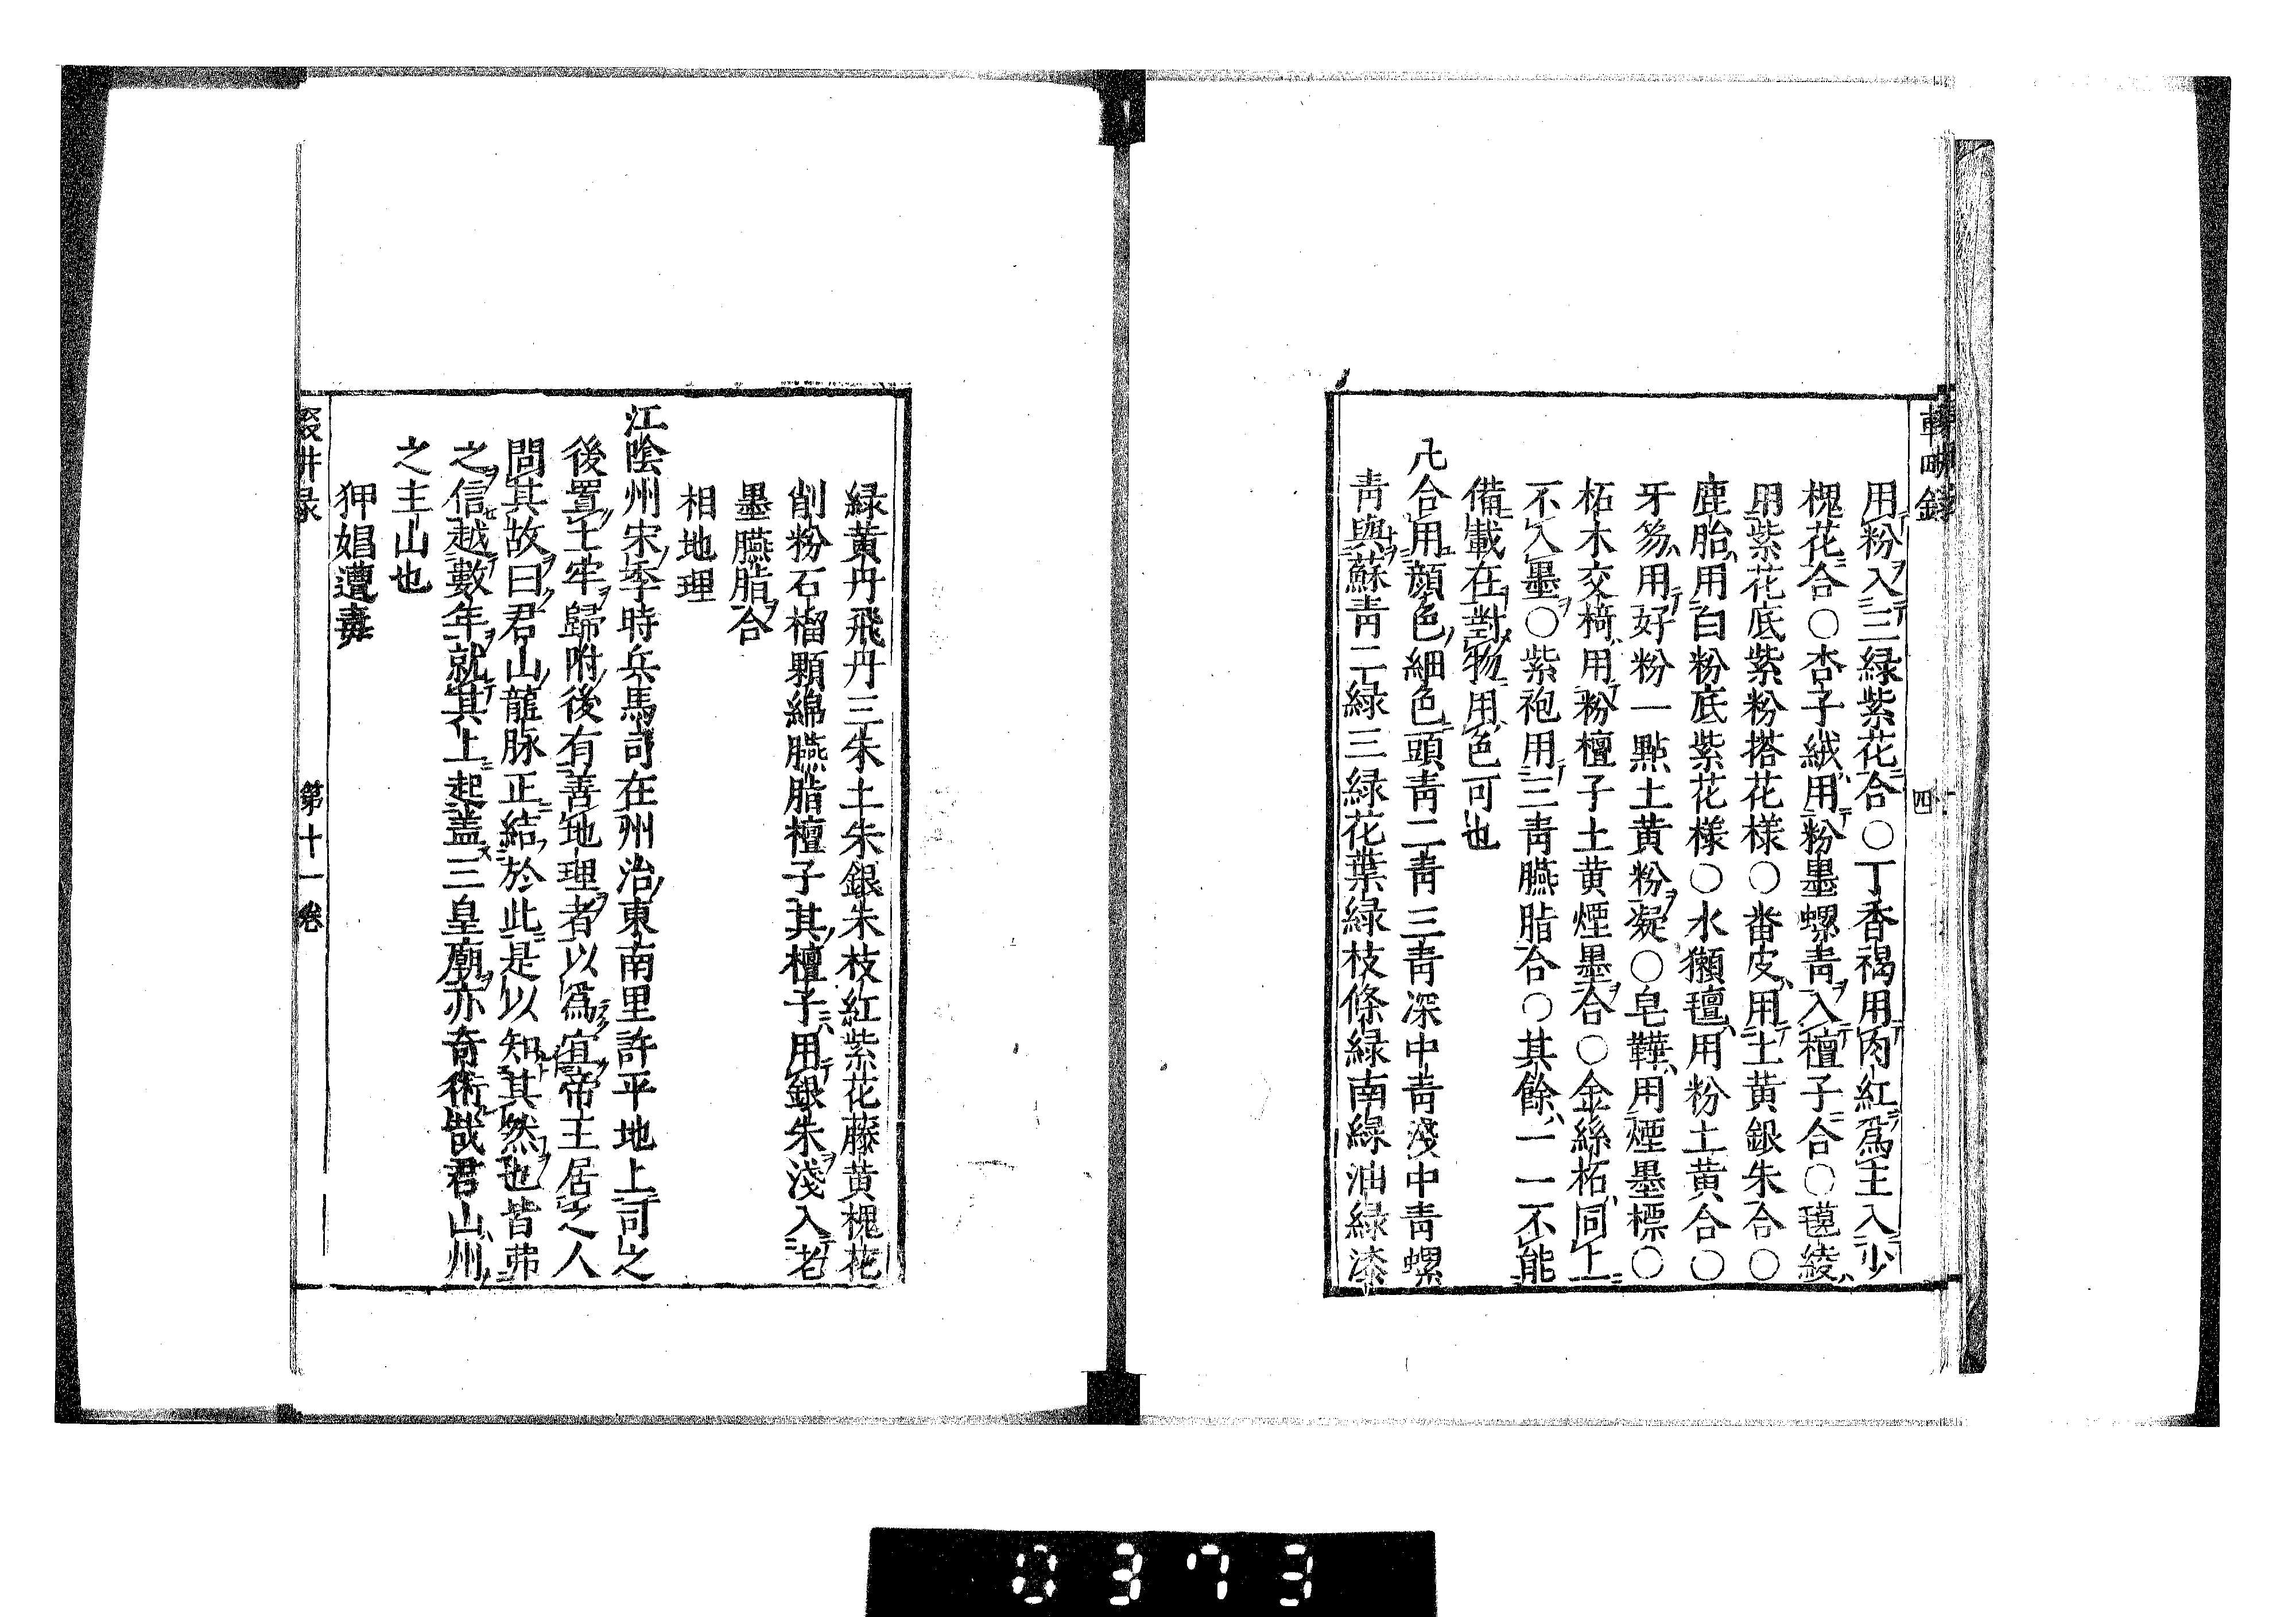 用粉入三綠紫花合○丁香褐用肉紅爲主入少
槐花合○杏子絨用粉墨螺青入檀子合○氊綾
用紫花底紫粉搭花樣○番皮用土黄銀朱合○
鹿胎用白粉底紫花樣○水獺氊用粉土黄合○
牙笏用好粉一點土黄粉凝○皂鞾用煙墨標○
柘木交椅用粉檀子土黄煙墨合○金絲柘同上
不入墨○紫袍用三青臙脂合○其餘一一不能
備載在對物用色可也
凡合用顔色細色頭青二青三青深中青淺中青螺
青與蘇青二緑三緑花葉緑枝條緑南緑油緑漆
四
緑黄丹飛丹三朱土朱銀朱枝紅紫花藤黄槐花
削粉石榴顆綿臙脂檀子其檀子用銀朱淺入老
墨臙脂合
相地理
江陰州宋季時兵馬司在州治東南里許平地上司之
後置土牢歸附後有善地理者以爲宜帝王居之人
問其故曰君山龍脉正結於此是以知其然也皆弗
之信越數年就其上起盖三皇廟亦奇術哉君山州
之主山也
狎娼遭毒
第十一卷
0373